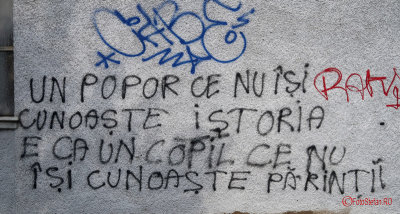 UN POPOR CE NU ÎȘI
CUNOAȘTE ISTORIA
E CA UN COPIL CE NU
ÎȘI CUNOAȘTE PĂRINȚII
©FotoStefan.RO